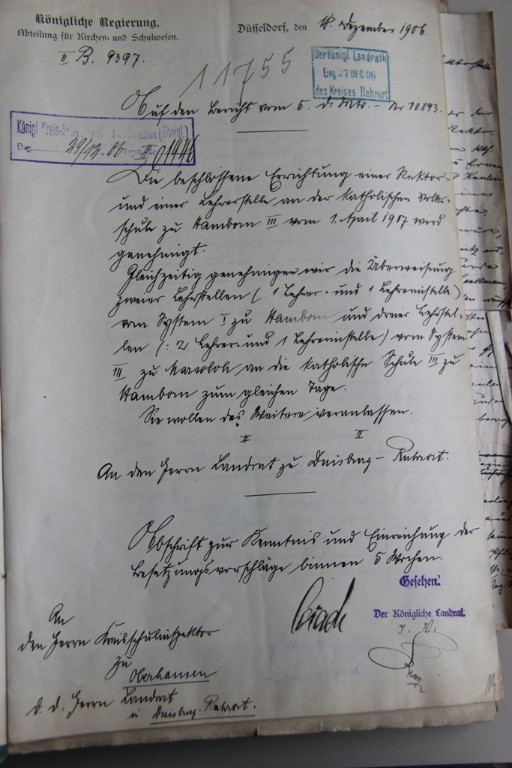 Königliche Regierung,
Abteilung für Kirchen- und Schulwesen.
II B. 9397.
Düsseldorf, den 18. Dezember 1906
11755
Der Königl. Landrath
des Kreises Ruhrort
Königl. Kreis-
29/12. 06
Auf den Bericht vom 5. d. Mts. - Nr 10893.
Die beschlossene Errichtung einer Rektor-
und einer Lehrerstelle an der katholischen Volks-
schule zu Hamborn III vom 1. April 1907 wird
genehmigt.
Gleichzeitig genehmigen wir die Überweisung
zweier Lehrstellen (1 Lehrer- und 1 Lehrerinstelle)
vom System I zu Hamborn und dreier Lehrstel-
len (: 2 Lehrer- und 1 Lehrerinstelle) vom System
III zu Marxloh, an die katholische Schule III zu
Hamborn zum gleichen Tage.
Sie wollen das Weitere veranlassen.
II II
An den Herrn Landrat zu Duisburg-Ruhrort.
Abschrift zur Kenntnis und Einreichung der
Besetzungsvorschläge binnen 5 Wochen.
Gesehen:
Der Königliche Landrat.
An
den Herrn Kreisschulinspektor
zu
Oberhausen
d. d. Herrn Landrat
in Duisburg-Ruhrort.